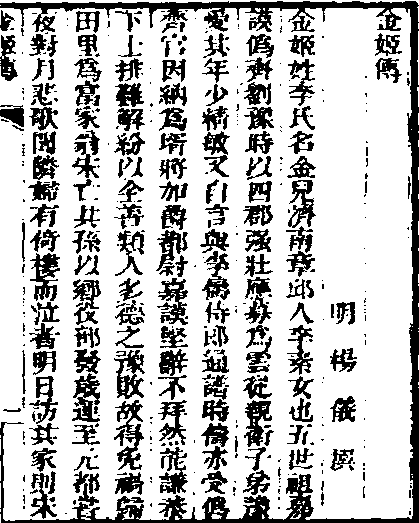 金姬傳
明楊儀撰
金姬姓李氏名金兒濟南章邱人李素女也五世祖嘉
謨僞齊劉豫時以四郡強壯應募爲雲從親衛子弟豫
愛其年少精敏又自言與李儔侍郎通譜時儔亦受僞
齊官因納爲壻將加爵都尉嘉謨堅辭不拜然能謙恭
下士排難解紛以全善類人多德之豫敗故得免禍歸
田里爲富家翁宋亡其孫以鄉役部發歲運至元都嘗
夜對月悲歌聞隣婦有倚樓而泣者明日訪其家則宋
金姬傳